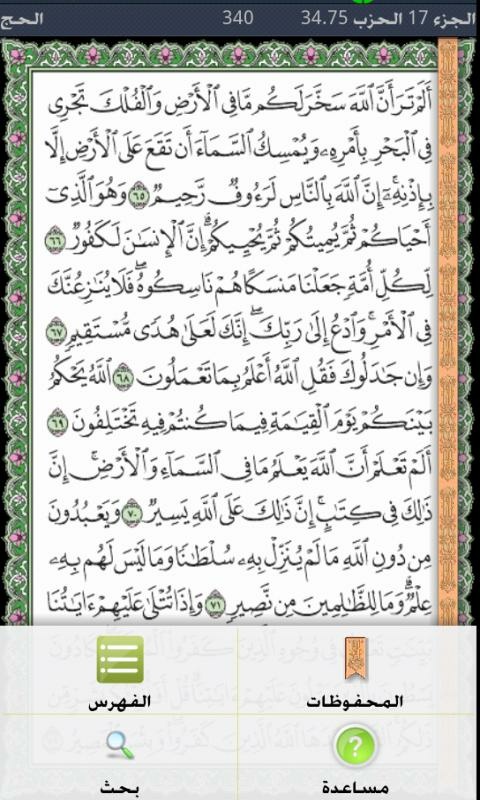 الجزء 17 الحزب 34.75 340 الحج
أَلَمْ تَرَ أَنَّ ٱللَّهَ سَخَّرَ لَكُم مَّا فِى ٱلْأَرْضِ وَٱلْفُلْكَ تَجْرِى
فِى ٱلْبَحْرِ بِأَمْرِهِۦ وَيُمْسِكُ ٱلسَّمَآءَ أَن تَقَعَ عَلَى ٱلْأَرْضِ إِلَّا
بِإِذْنِهِۦٓ ۗ إِنَّ ٱللَّهَ بِٱلنَّاسِ لَرَءُوفٌ رَّحِيمٌ ٦٥ وَهُوَ ٱلَّذِىٓ
أَحْيَاكُمْ ثُمَّ يُمِيتُكُمْ ثُمَّ يُحْيِيكُمْ ۗ إِنَّ ٱلْإِنسَٰنَ لَكَفُورٌ ٦٦
لِّكُلِّ أُمَّةٍ جَعَلْنَا مَنسَكًا هُمْ نَاسِكُوهُ ۖ فَلَا يُنَٰزِعُنَّكَ
فِى ٱلْأَمْرِ ۚ وَٱدْعُ إِلَىٰ رَبِّكَ ۖ إِنَّكَ لَعَلَىٰ هُدًى مُّسْتَقِيمٍ ٦٧
وَإِن جَٰدَلُوكَ فَقُلِ ٱللَّهُ أَعْلَمُ بِمَا تَعْمَلُونَ ٦٨ ٱللَّهُ يَحْكُمُ
بَيْنَكُمْ يَوْمَ ٱلْقِيَٰمَةِ فِيمَا كُنتُمْ فِيهِ تَخْتَلِفُونَ ٦٩
أَلَمْ تَعْلَمْ أَنَّ ٱللَّهَ يَعْلَمُ مَا فِى ٱلسَّمَآءِ وَٱلْأَرْضِ ۗ إِنَّ
ذَٰلِكَ فِى كِتَٰبٍ ۚ إِنَّ ذَٰلِكَ عَلَى ٱللَّهِ يَسِيرٌ ٧٠ وَيَعْبُدُونَ
مِن دُونِ ٱللَّهِ مَا لَمْ يُنَزِّلْ بِهِۦ سُلْطَٰنًا وَمَا لَيْسَ لَهُم بِهِۦ
عِلْمٌ ۗ وَمَا لِلظَّٰلِمِينَ مِن نَّصِيرٍ ٧١ وَإِذَا تُتْلَىٰ عَلَيْهِمْ ءَايَٰتُنَا
المحفوظات
الفهرس
مساعدة
بحث